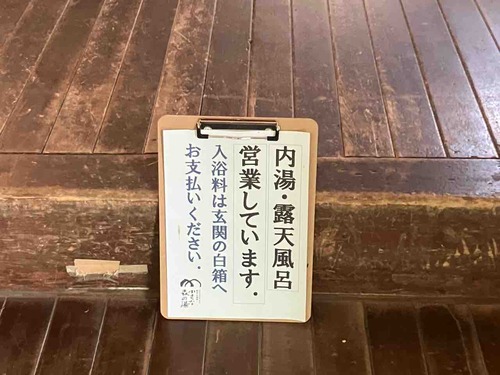 内湯・露天風呂
営業しています．
入浴料は玄関の白箱へ
お支払いください．
森の湯